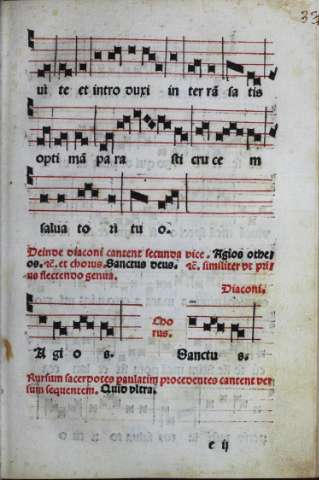 33
ui te et intro duxi in ter rā sa tis
opti mā pa ra sti cru ce m
salua to ri tu o.
Deinde diaconi cantent secunda vice. Agios othe
os. rē. et chorus. Sanctus deus. rē. similiter vt pri
us flectendo genua.
Diaconi.
Cho
rus.
A gi o s. Sanctu s.
Rursum sacerdotes paulatim procedentes cantent ver
sum sequentem. Quid vltra.
e ij